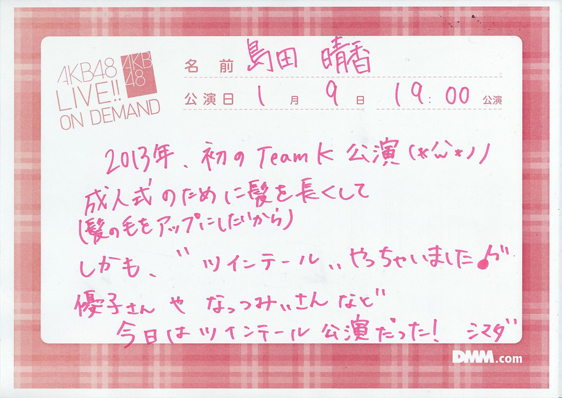 AKB48
LIVE!!
ON DEMAND
AKB
48
名前 島田 晴香
公演日 1月 9日 19:00 公演
2013年、初のTeamK 公演(*´ω`*)ノ
成人式のために髪を長くして
(髪の毛をアップにしたいから)
しかも、〝ツインテール〟やっちゃいました♪
優子さん や なっつみぃさん など
今日はツインテール公演だった! シマダ
DMM.com